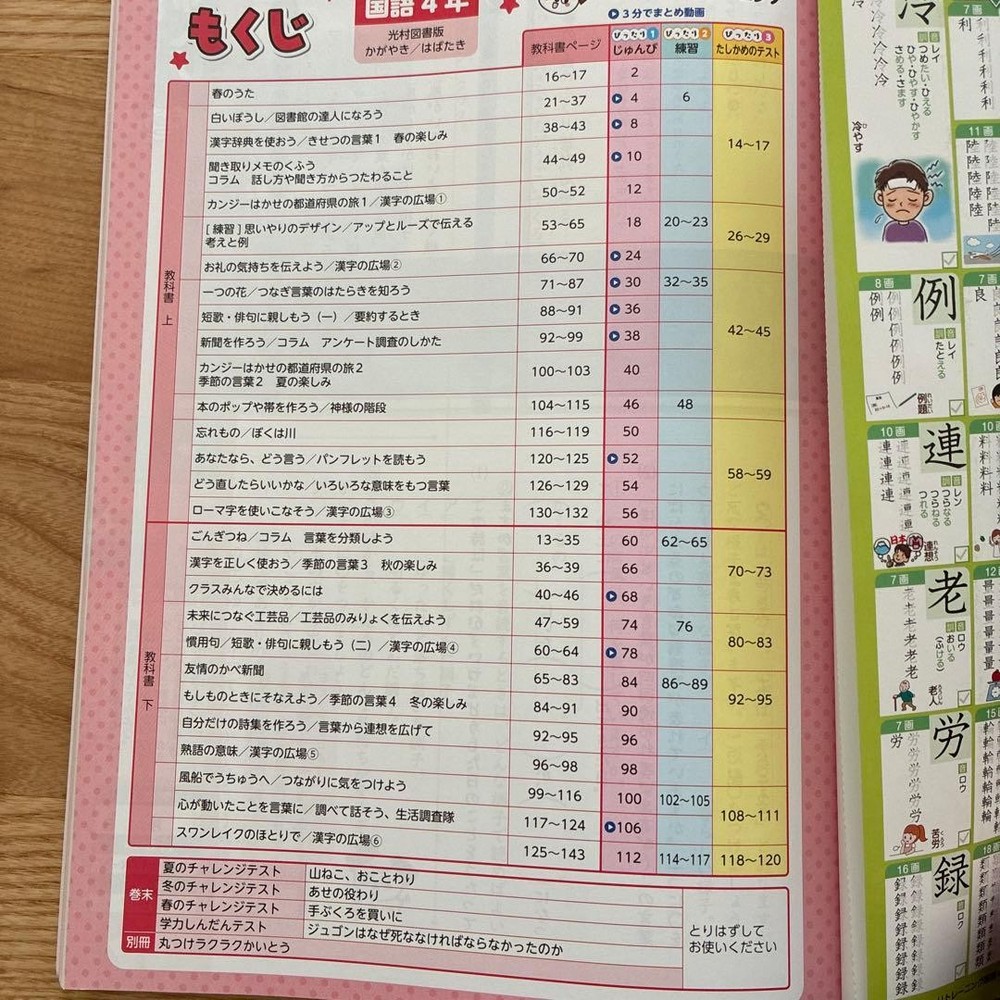 もくじ
国語4年
光村図書版
かがやき/はばたき
3分でまとめ動画
教科書ページ
ぴったり1 じゅんび
ぴったり2 練習
ぴったり3 たしかめのテスト
教科書 上
春のうた 16〜17 2
白いぼうし/図書館の達人になろう 21〜37 4 6
漢字辞典を使おう/きせつの言葉1 春の楽しみ 38〜43 8
聞き取りメモのくふう
コラム 話し方や聞き方からつたわること 44〜49 10
カンジーはかせの都道府県の旅1/漢字の広場① 50〜52 12
14〜17
[練習]思いやりのデザイン/アップとルーズで伝える
考えと例 53〜65 18 20〜23
お礼の気持ちを伝えよう/漢字の広場② 66〜70 24
26〜29
一つの花/つなぎ言葉のはたらきを知ろう 71〜87 30 32〜35
短歌・俳句に親しもう(一)/要約するとき 88〜91 36
新聞を作ろう/コラム アンケート調査のしかた 92〜99 38
カンジーはかせの都道府県の旅2
季節の言葉2 夏の楽しみ 100〜103 40
42〜45
本のポップや帯を作ろう/神様の階段 104〜115 46 48
忘れもの/ぼくは川 116〜119 50
あなたなら、どう言う/パンフレットを読もう 120〜125 52
どう直したらいいかな/いろいろな意味をもつ言葉 126〜129 54
ローマ字を使いこなそう/漢字の広場③ 130〜132 56
58〜59
教科書 下
ごんぎつね/コラム 言葉を分類しよう 13〜35 60 62〜65
漢字を正しく使おう/季節の言葉3 秋の楽しみ 36〜39 66
クラスみんなで決めるには 40〜46 68
70〜73
未来につなぐ工芸品/工芸品のみりょくを伝えよう 47〜59 74 76
慣用句/短歌・俳句に親しもう(二)/漢字の広場④ 60〜64 78
80〜83
友情のかべ新聞 65〜83 84 86〜89
もしものときにそなえよう/季節の言葉4 冬の楽しみ 84〜91 90
92〜95
自分だけの詩集を作ろう/言葉から連想を広げて 92〜95 96
熟語の意味/漢字の広場⑤ 96〜98 98
風船でうちゅうへ/つながりに気をつけよう 99〜116 100 102〜105
心が動いたことを言葉に/調べて話そう、生活調査隊 117〜124 106
108〜111
スワンレイクのほとりで/漢字の広場⑥ 125〜143 112 114〜117 118〜120
巻末
夏のチャレンジテスト 山ねこ、おことわり
冬のチャレンジテスト あせの役わり
春のチャレンジテスト 手ぶくろを買いに
学力しんだんテスト ジュゴンはなぜ死ななければならなかったのか
別冊 丸つけラクラクかいとう
とりはずして
お使いください
冷
冷冷冷冷冷
音 レイ
訓 つめたい・ひえる
ひや・ひやす・ひやかす
さめる・さます
冷やす
7画
利利利利利
11画
陸陸陸陸
8画
例
例例例例例例
音 レイ
訓 たとえる
例題
7画
良
10画
連
連連連連連連連
音 レン
訓 つらなる
つらねる
つれる
連想
日本
10画
料料料料
7画
老
老老老老老
音 ロウ
訓 おいる
(ふける)
老人
12画
量量量量
7画
労
労労労労労労
音 ロウ
苦労
15画
輪輪輪輪輪
16画
録
録録録録録録録
音 ロク
18画
類類類類類